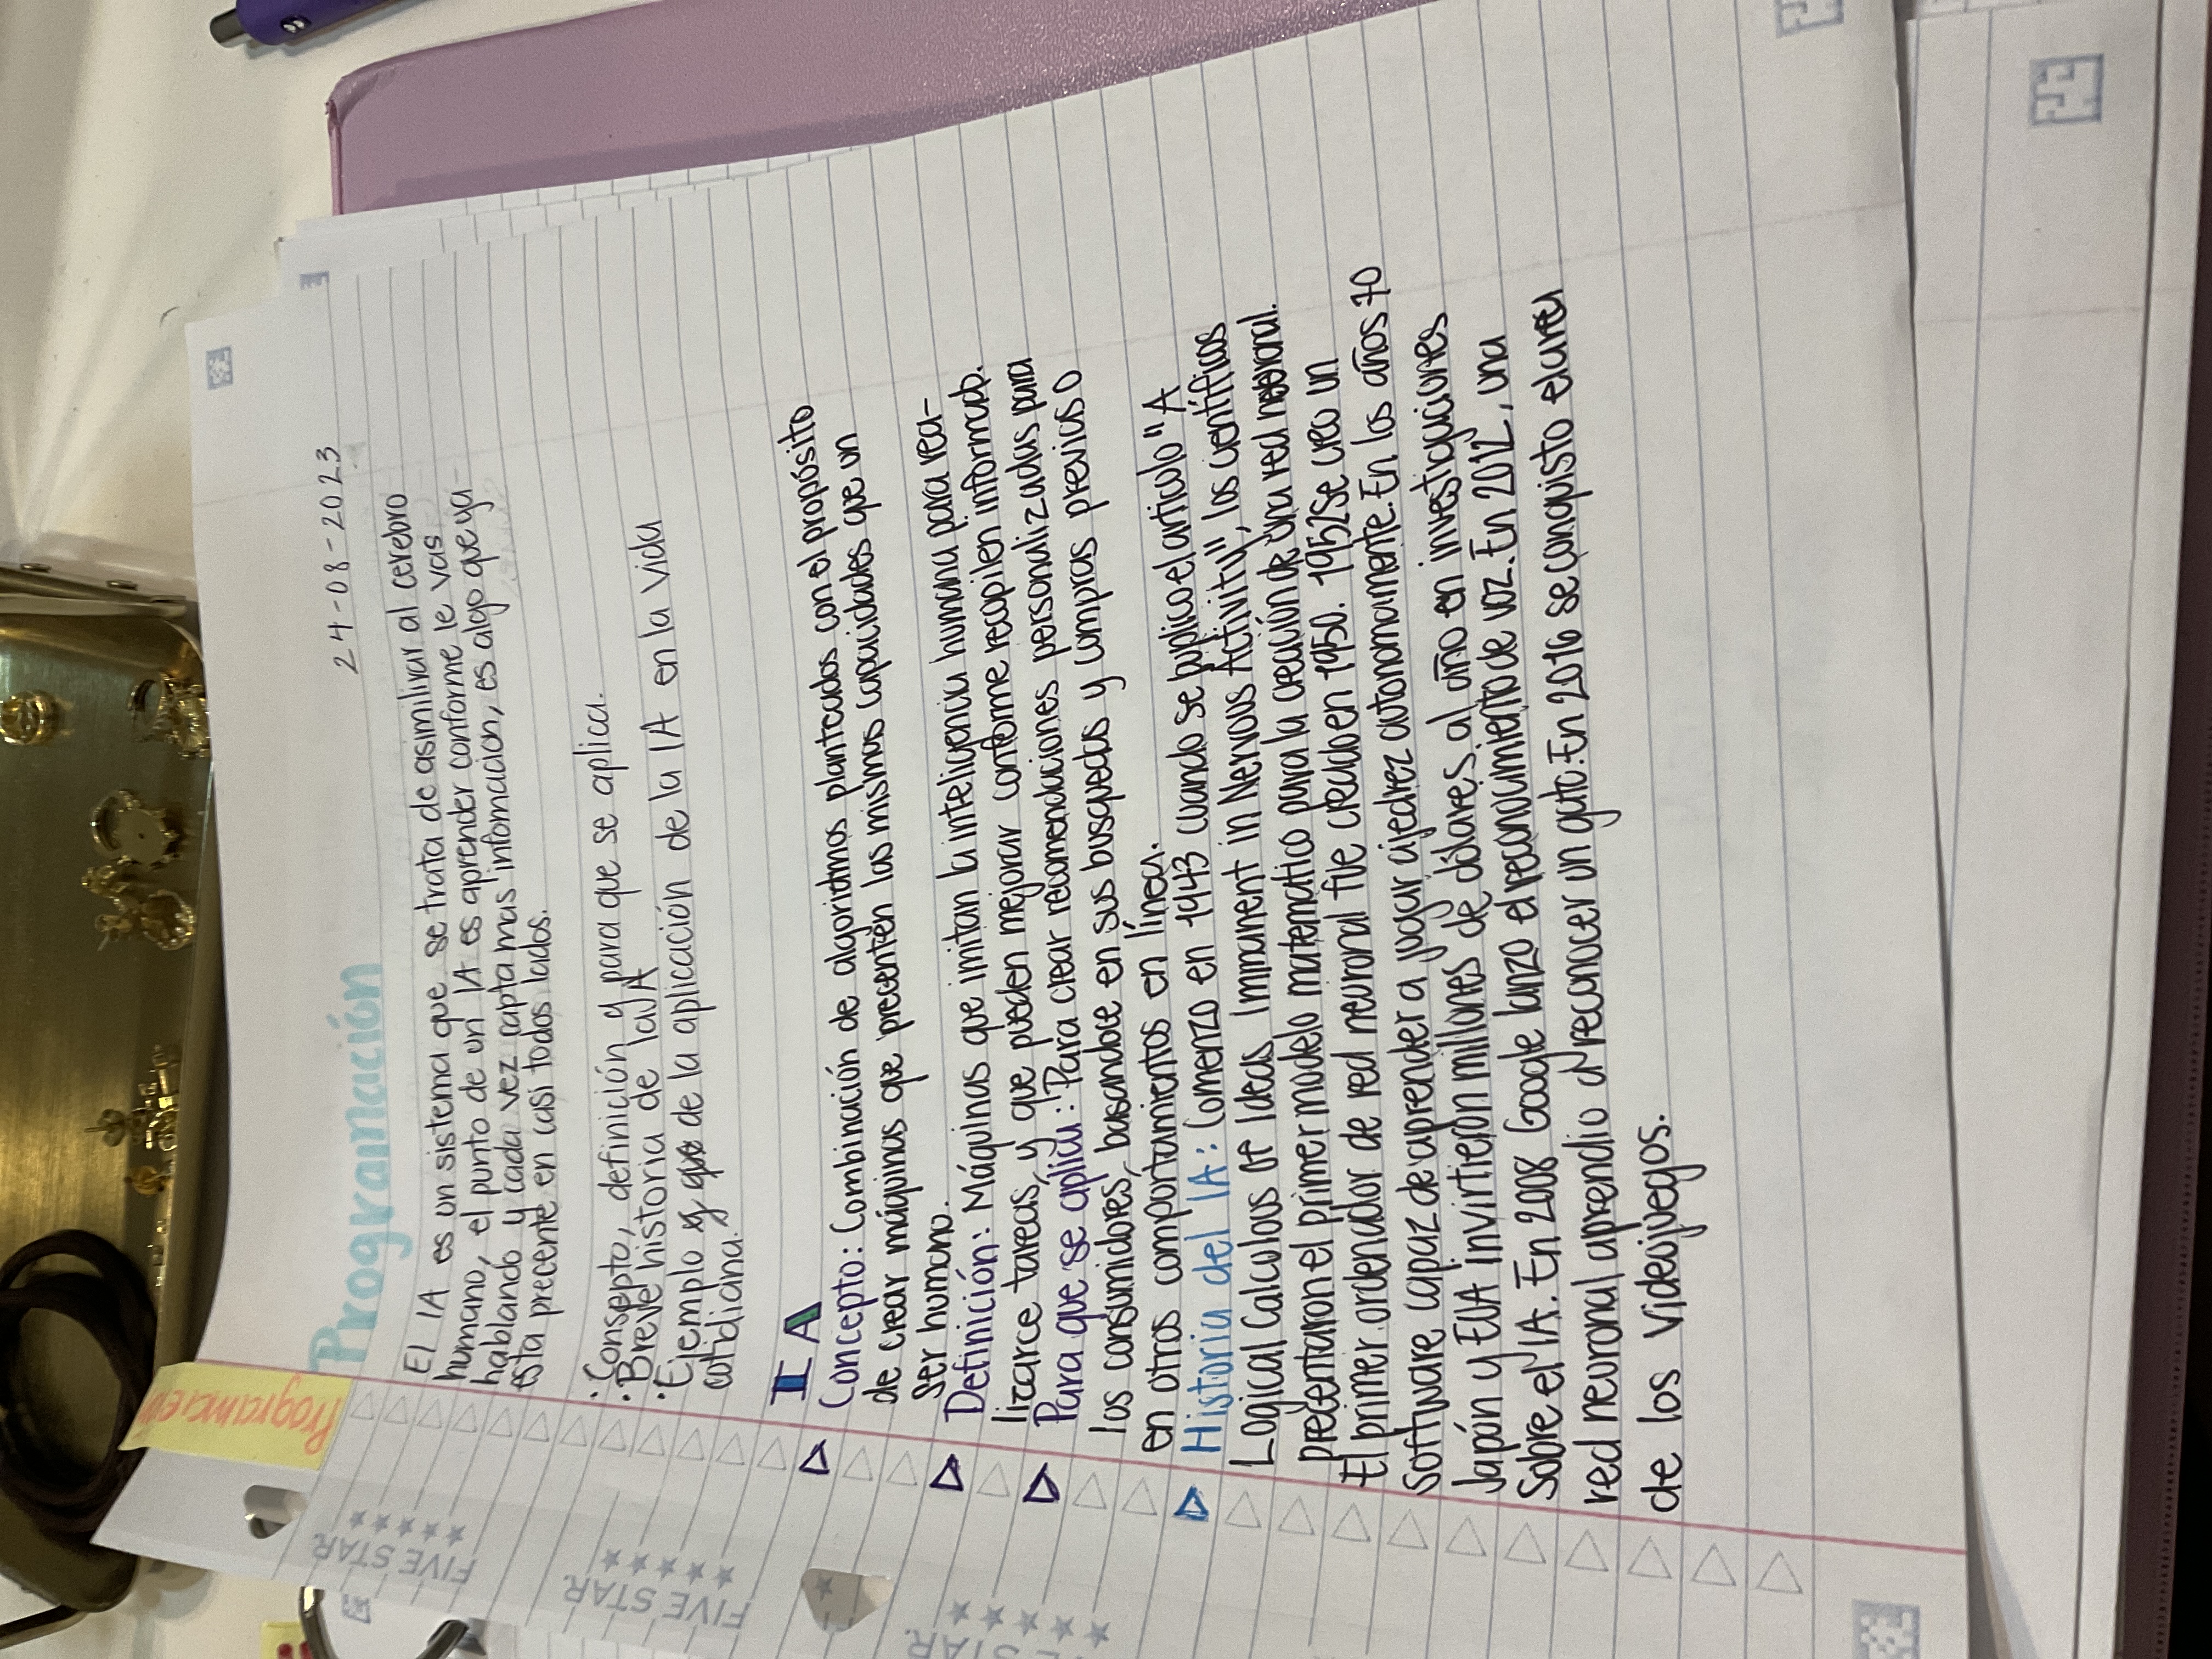 Programación
24-08-2023
Programación
El IA es un sistema que se trata de asimilirar al cerebro
humano, el punto de un IA es aprender conforme le vas
hablando y cada vez capta mas infomcacion, es algo que ya
esta precente en casi todos lados.
·Consepto, definición y para que se aplica.
·Breve historia de la IA
·Ejemplo y que de la aplicación de la IA en la vida
cotidiana.
IA
Concepto: Combinación de algoritmos planteados con el propósito
de crear máquinas que presenten las mismas capacidades que un
ser humano.
Definición: Máquinas que imitan la inteligencia humana para rea-
lizarce tareas, y que pueden mejorar conforme recopilen informacb.
Para que se aplica: Para crear recomendaciones personalizadas para
los consumidores, basandose en sus busquedas y compras previas o
en otros comportamientos en línea.
Historia del IA: Comenzo en 1943 cuando se publico el articulo "A
Logical Calculous of Ideas Immanent in Nervous Activity", los científicos
presentaron el primer modelo matematico para la creación de una red neuronal.
El primer ordenador de red neuronal fue creado en 1950. 1952 Se creo un
software capaz de aprender a jugar ajedrez autonomamente. En los años 70
Japón y EUA invirtieron millones de dólares al año en investigaciones
sobre el IA. En 2008 Google lanzo el reconocimiento de voz. En 2012, una
red neuronal aprendio a reconocer un gato. En 2016 se conquisto el area
de los videojuegos.
FIVE STAR.
FIVE STAR.
E STAR.